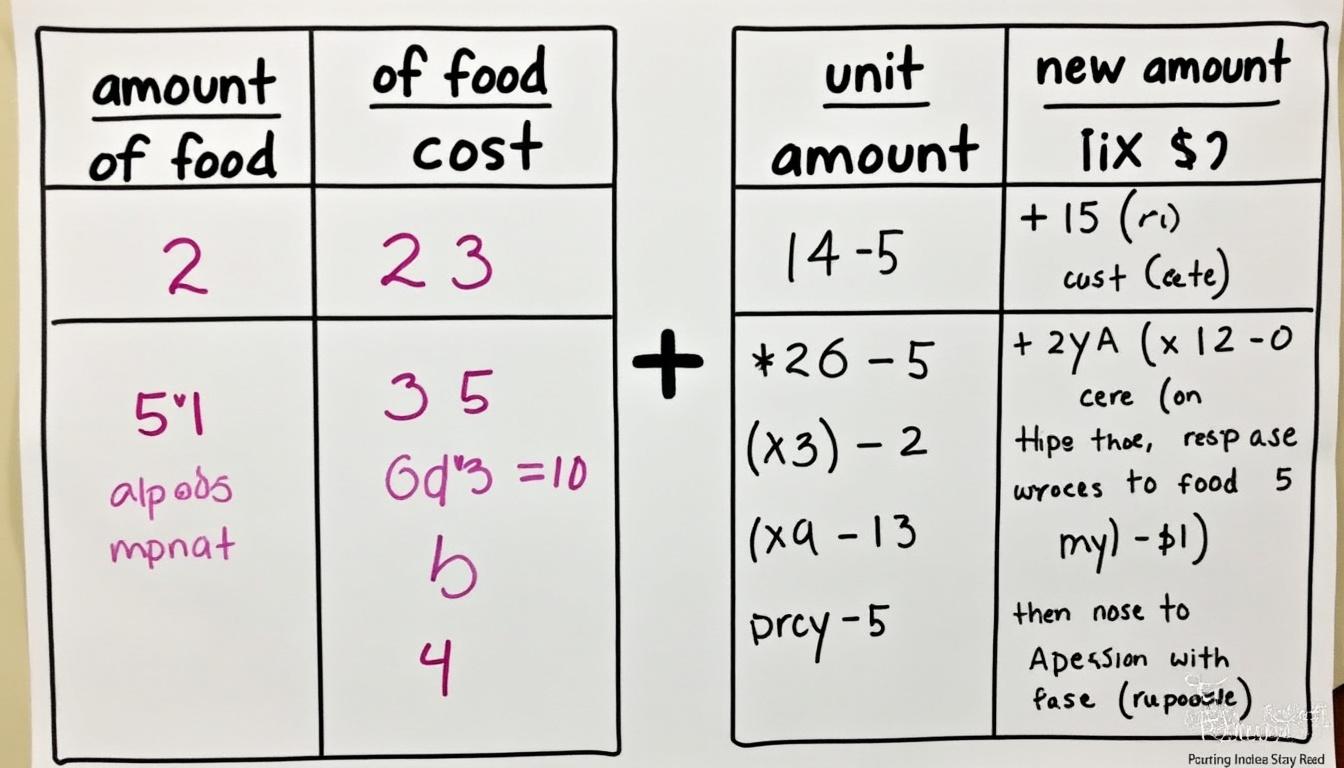 amount
of food
of food
cost
2
2 3
5"1
alpods
mpnat
3 5
6d"3 =10
b
4
+
unit
amount
new amount
lix $?
14-5
+ 15 (ri)
cust (cete)
*26 - 5
(x3) - 2
(xa - 13
prcy - 5
+ 2yA (x 12 -0
cere (on
Hipe thoe, resp ase
wroces to food 5
my) - $1)
then nose to
Apession with
fase (rupoosle)
Pourting Indea Stay Reed